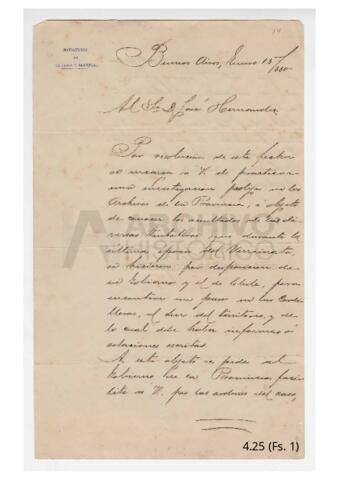 MINISTERIO
DE
GUERRA Y MARINA.
Buenos Aires, Enero 15/880
Al Sr. D. José Hernandez
Por resolucion de esta fecha
se encarga a V. de practicar
una investigacion prolija en los
Archivos de la Provincia, á objeto
de conocer los resultados de las di-
versas tentativas que durante la
última época del Virreinato,
se hicieron por disposicion de
su Gobierno y el de Chile, para
encontrar un paso en las Cordi-
lleras, al Sur del territorio, y de
lo cual debe haber informes ó
relaciones escritas.
A este objeto se pide al
Gobierno de la Provincia, faci-
lite a V. por las ordenes del caso,
ARCHIVO
HISTÓRICO
4.25 (Fs. 1)